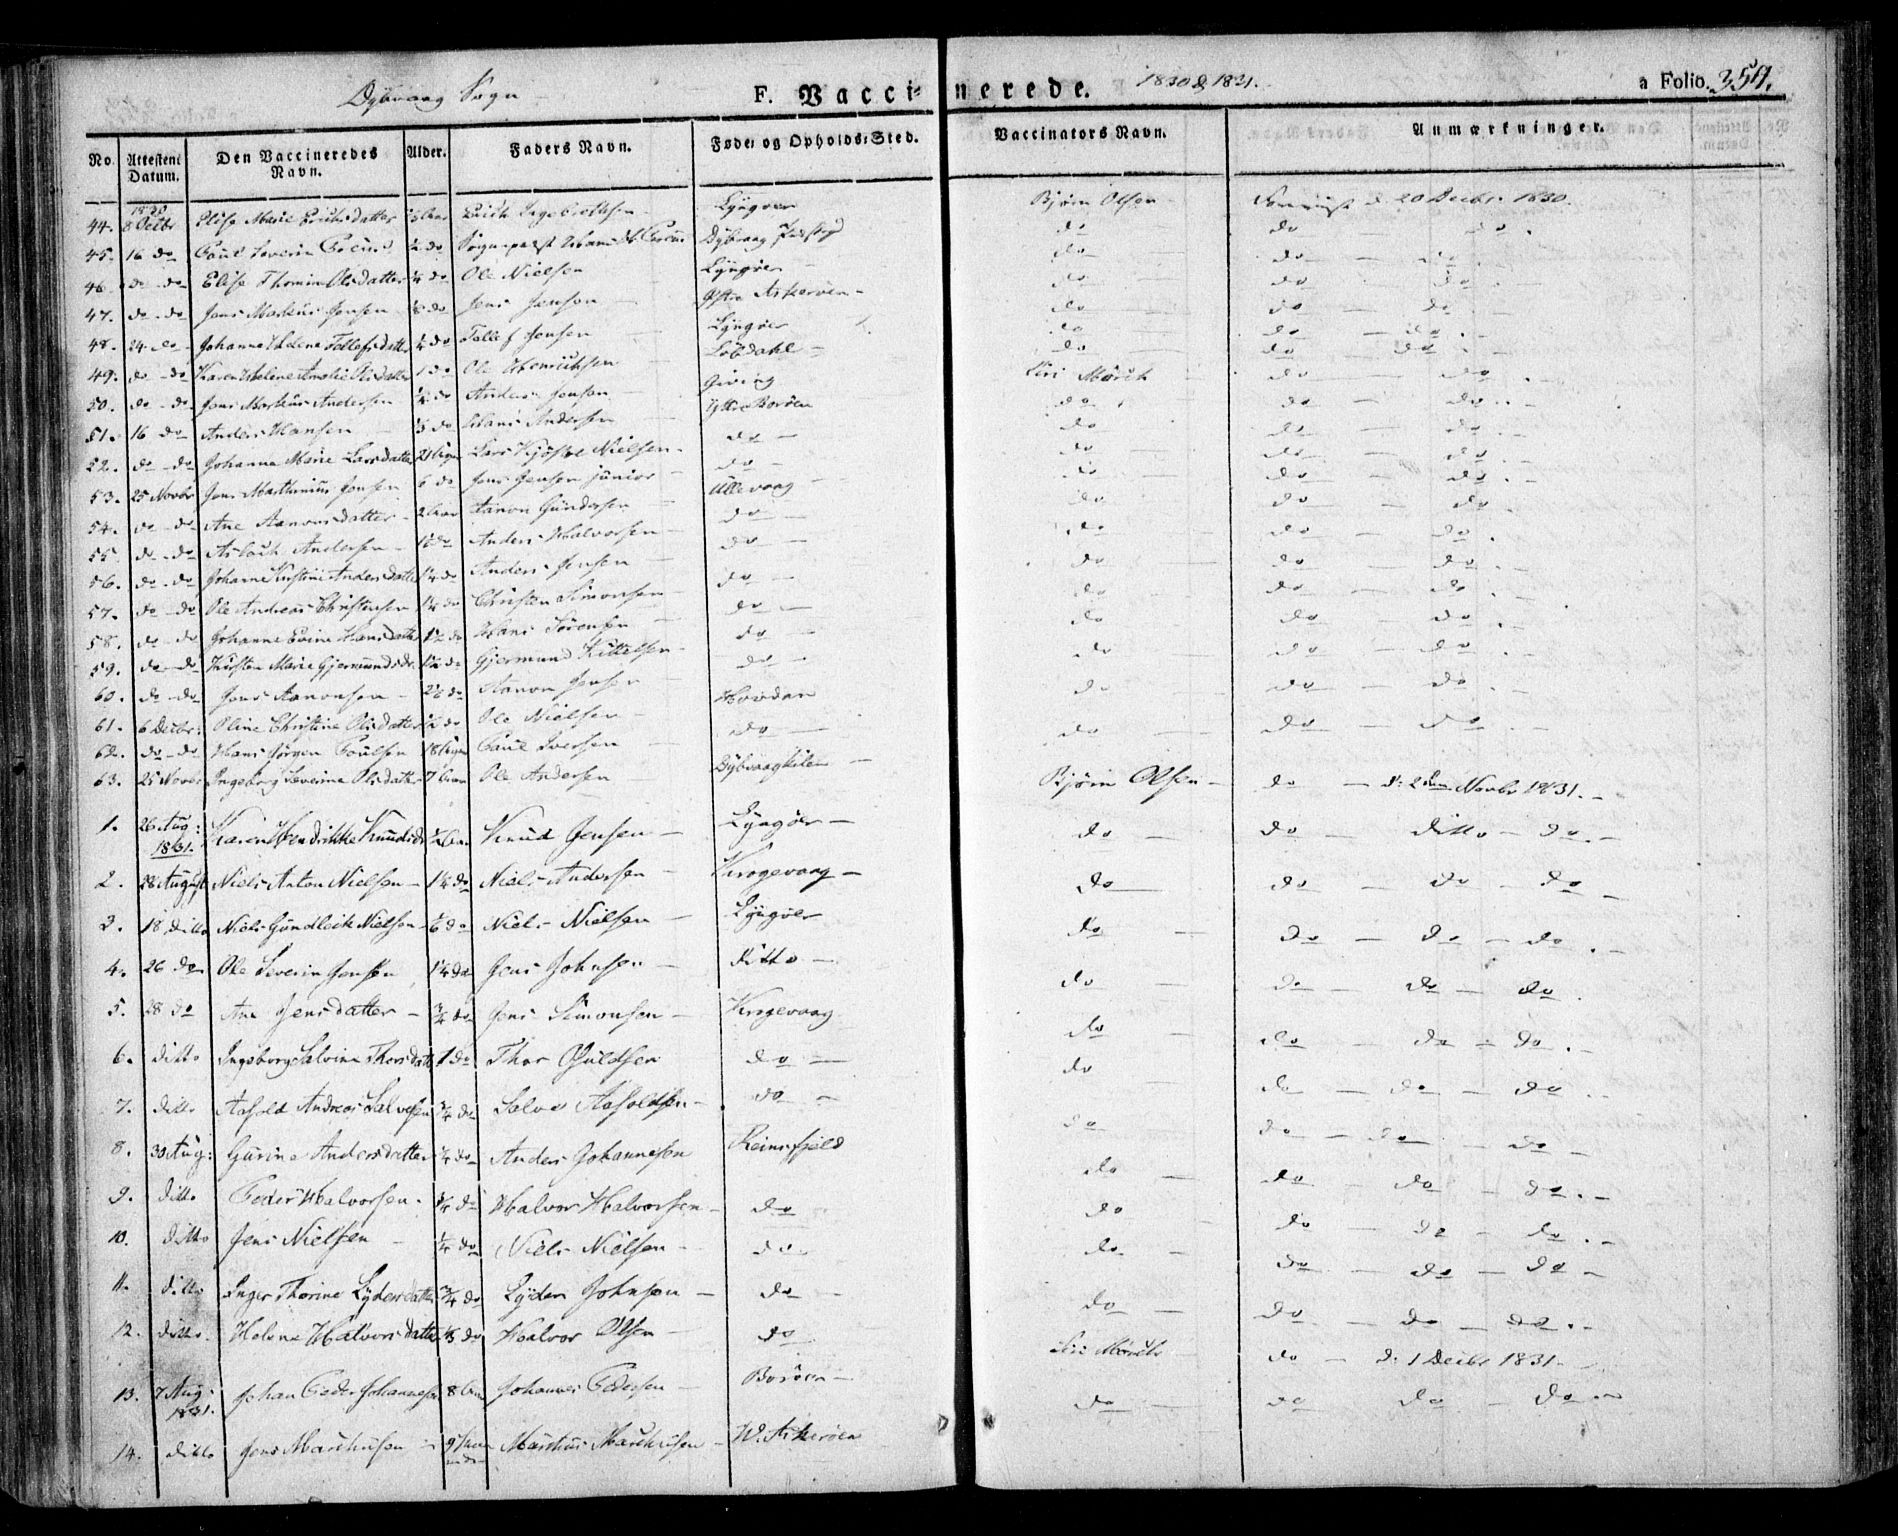 Dybvaag Sogn F. Vaccinerede. 1830 & 1831. a Folio. 354.
No. Attestens Datum. Den Vaccineredes Navn. Alder. Faders Navn. Føde- og Opholds-Sted. Vaccinators Navn. Anmærkninger.
44. 1830 8 Octbr Elise Marie Erichsdatter Erich Ingebrethsen Lyngøer Bjørn Olsen d. 20 Decbr 1830.
45. 16 do Poul Severin ½ do Dybvaag do do do
46. do do Elise Thomin Olsdatter ¼ do Ole Nielsen Lyngøer do do do
47. do do Jens Markus Jensen do Jens Jensen Østre Askerøen do do do
48. 24 do Johanne Helene Tellefsdatter ¼ do Tellef Jensen Lyngøer do do do
49. do do Karen Helene Amalie Olsdatter 1 do Ole Henrichsen do do do
50. do do Jens Markus Andersen ¼ do Anders Jensen Giving Siri Mörch do do
51. 16 do Anders Hansen ⅓ do Hans Andersen Yttre Borøen do do do
52. do do Johanne Marie Larsdatter Lars Nielsen do do do do
53. 25 Novbr Jens Marthinius Jensen 6 do Jens Jensen junior do do do do
54. do do Ane Aanonsdatter 2 Aar Aanon Gundersen Ullevaag do do do
55. do do Aslach Andersen do Anders Halvorsen do do do do
56. do do Johanne Kirstine Andersdatter 1¼ do Anders Jensen do do do do
57. do do Ole Andreas Christensen do Christen Simonsen do do do do
58. do do Johanne Evine Hansdatter 1½ do Hans Sörensen do do do do
59. do do Kirsten Marie Gjermundsdr. 1½ do Gjermund Kittelsen do do do do
60. do do Jens Aanonsen 2½ do Aanon Jensen do do do do
61. 6 Decbr: Oline Christine Olsdatter ½ do Ole Nielsen Hovdan do do do
62. do do Hans Jörgen Poulsen Poul Iversen do do do do
63. 25 Novbr Ingeborg Severine Olsdatter 7 Ole Andersen Dybvaagkilen
1. 26 Aug: 1831. Karen Hendrikke Knudsdr Knud Jensen Lyngøer Bjørn Olsen do d: 2den Novbr 1831.
2. 28 August Niels Anton Nielsen 1¼ do Niels Andersen Krogevaag do do ditto do
3. 18 ditto Niels Gundleik Nielsen do Niels Nielsen Lyngøer do do do do
4. 26 do Ole Severin Jensen 1¼ do Jens Johnsen ditto do do do do
5. 28 do Ane Jensdatter ¾ do Jens Simonsen Krogevaag do do do do
6. ditto Ingeborg Salvine Thorsdatt 1 do Thor do do do do do
7. ditto Aasold Andreas Salvesen ¾ do Salve Aasoldsen do do do do do
8. 30 Aug: Gurine Andersdatter ¼ do Anders Johannesen Reinsfjeld do do do do
9. ditto Peder Halvorsen ¾ do Halvor Halvorsen do do do do do
10. ditto Jens Nielsen ¼ do Niels Nielsen do do do do do
11. ditto Inger Thorine Lydersdatter ¾ do Lyder Johnsen do do do do do
12. ditto. Helene Halvorsdatter ⅓ do Halvor Olsen do do do do do
13. 7 Aug: 1831. Johan Peder Johannesen 8 Johannes Pedersen Borøen Siri Mörch do d: 1 Decbr 1831.
14. ditto Jens Marthusen Marthus Marthusen W. Askerøen do do do do